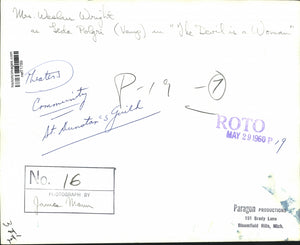 Mrs. Weslie Wright
as Leda Pelgri (Vamp) in "The Devil is a Woman"
Theaters
Community
St. Dunstan's Guild
P-19 - 7
ROTO
MAY 29 1960 P.19
No. 16
PHOTOGRAPH BY
James Mann
Paragon PRODUCTIONS
151 Brady Lane
Bloomfield Hills, Mich.